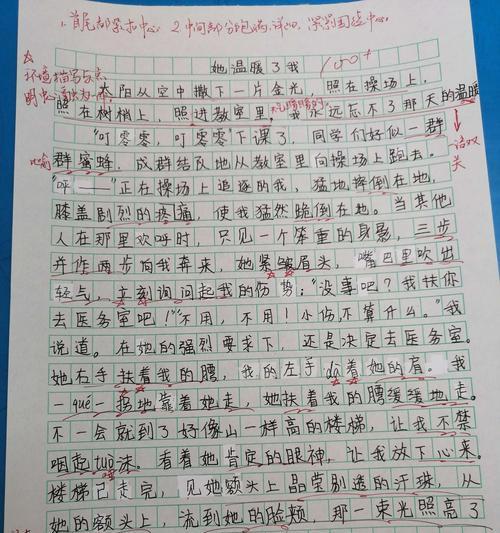 1.首尾都紧扣中心 2.中间部分饱满、详细,紧紧围绕中心。
她温暖了我 100+
环境描写与点明中心融为一体
太阳从空中撒下一片金光,照在操场上,
照在树梢上,照进教室里。我永远忘不了那天的温暖
一语双关
“叮零零,叮零零”下课了,同学们好似一群
比喻
群蜜蜂,成群结队地从教室里向操场上跑去。
“呼——”正在操场上追逐的我,猛地摔倒在地,
膝盖剧烈的疼痛,使我猛然跪倒在地。当其他
人在那里欢呼时,只见一个笨重的身影,三步
并作两步向我奔来,她紧皱眉头,嘴巴里吹出
轻气,立刻询问起我的伤势:“没事吧?我扶你
去医务室吧!”“不用,不用!小伤,不算什么。”我
说道。在她的强烈要求下,还是决定去医务室。
她右手扶着我的腰,我的左手dā着她的肩。我
一qué一拐地靠着她走,她扶着我的腰缓缓地走。
不一会就到了好像山一样高的楼梯,让我不禁
咽起tuò沫。看着她肯定的眼神,让我放下心来。
楼梯已走完,见她额头上晶莹剔透的汗珠,从
她的额头上,流到她的脸颊,那一束光照亮了